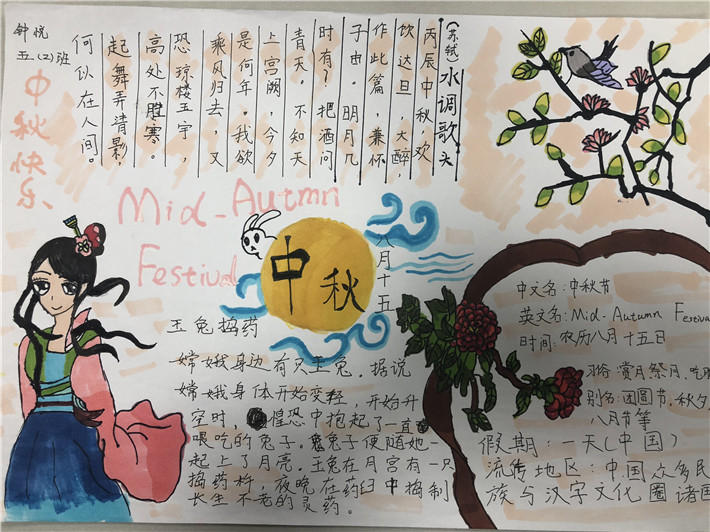 钟悦
五(2)班
中秋快乐
(苏轼)水调歌头
丙辰中秋,欢
饮达旦,大醉,
作此篇,兼怀
子由。明月几
时有?把酒问
青天。不知天
上宫阙,今夕
是何年。我欲
乘风归去,又
恐琼楼玉宇,
高处不胜寒。
起舞弄清影,
何似在人间。
Mid-Autmn
Festival
中秋
八月十五
玉兔捣药
嫦娥身边有只玉兔。据说
嫦娥身体开始变轻,开始升
空时,惶恐中抱起了一直
喂吃的兔子。兔子便随她一
起上了月亮。玉兔在月宫有一只
捣药杵,夜晚在药臼中捣制
长生不老的灵药。
中文名:中秋节
英文名:Mid-Autumn Festival
时间:农历八月十五日
习俗:赏月祭月、吃
别名:团圆节,秋夕,
八月节等
假期:一天(中国)
流传地区:中国众多民
族与汉字文化圈诸国